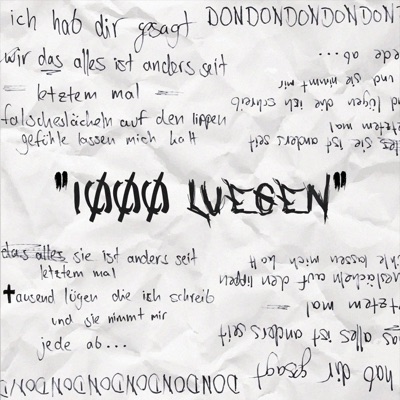 ich hab dir gesagt
DONDONDONDONDON
wir das alles ist anders seit
letztem mal
falscheslächeln auf den lippen
gefühle lassen mich kalt
ede ab ...
und sie nimmt mir
nd lügen die ich schreib
etztem mal
alles sie ist anders seit
"1ØØØ LUEGEN"
das alles sie ist anders seit
letztem mal
tausend lügen die ich schreib
und sie nimmt mir
jede ab ...
hle lassen mich kalt
eslächeln auf den lippen
tztem mal
das alles ist anders seit
hab dir gesagt
DONDONDONDONDONDONDON